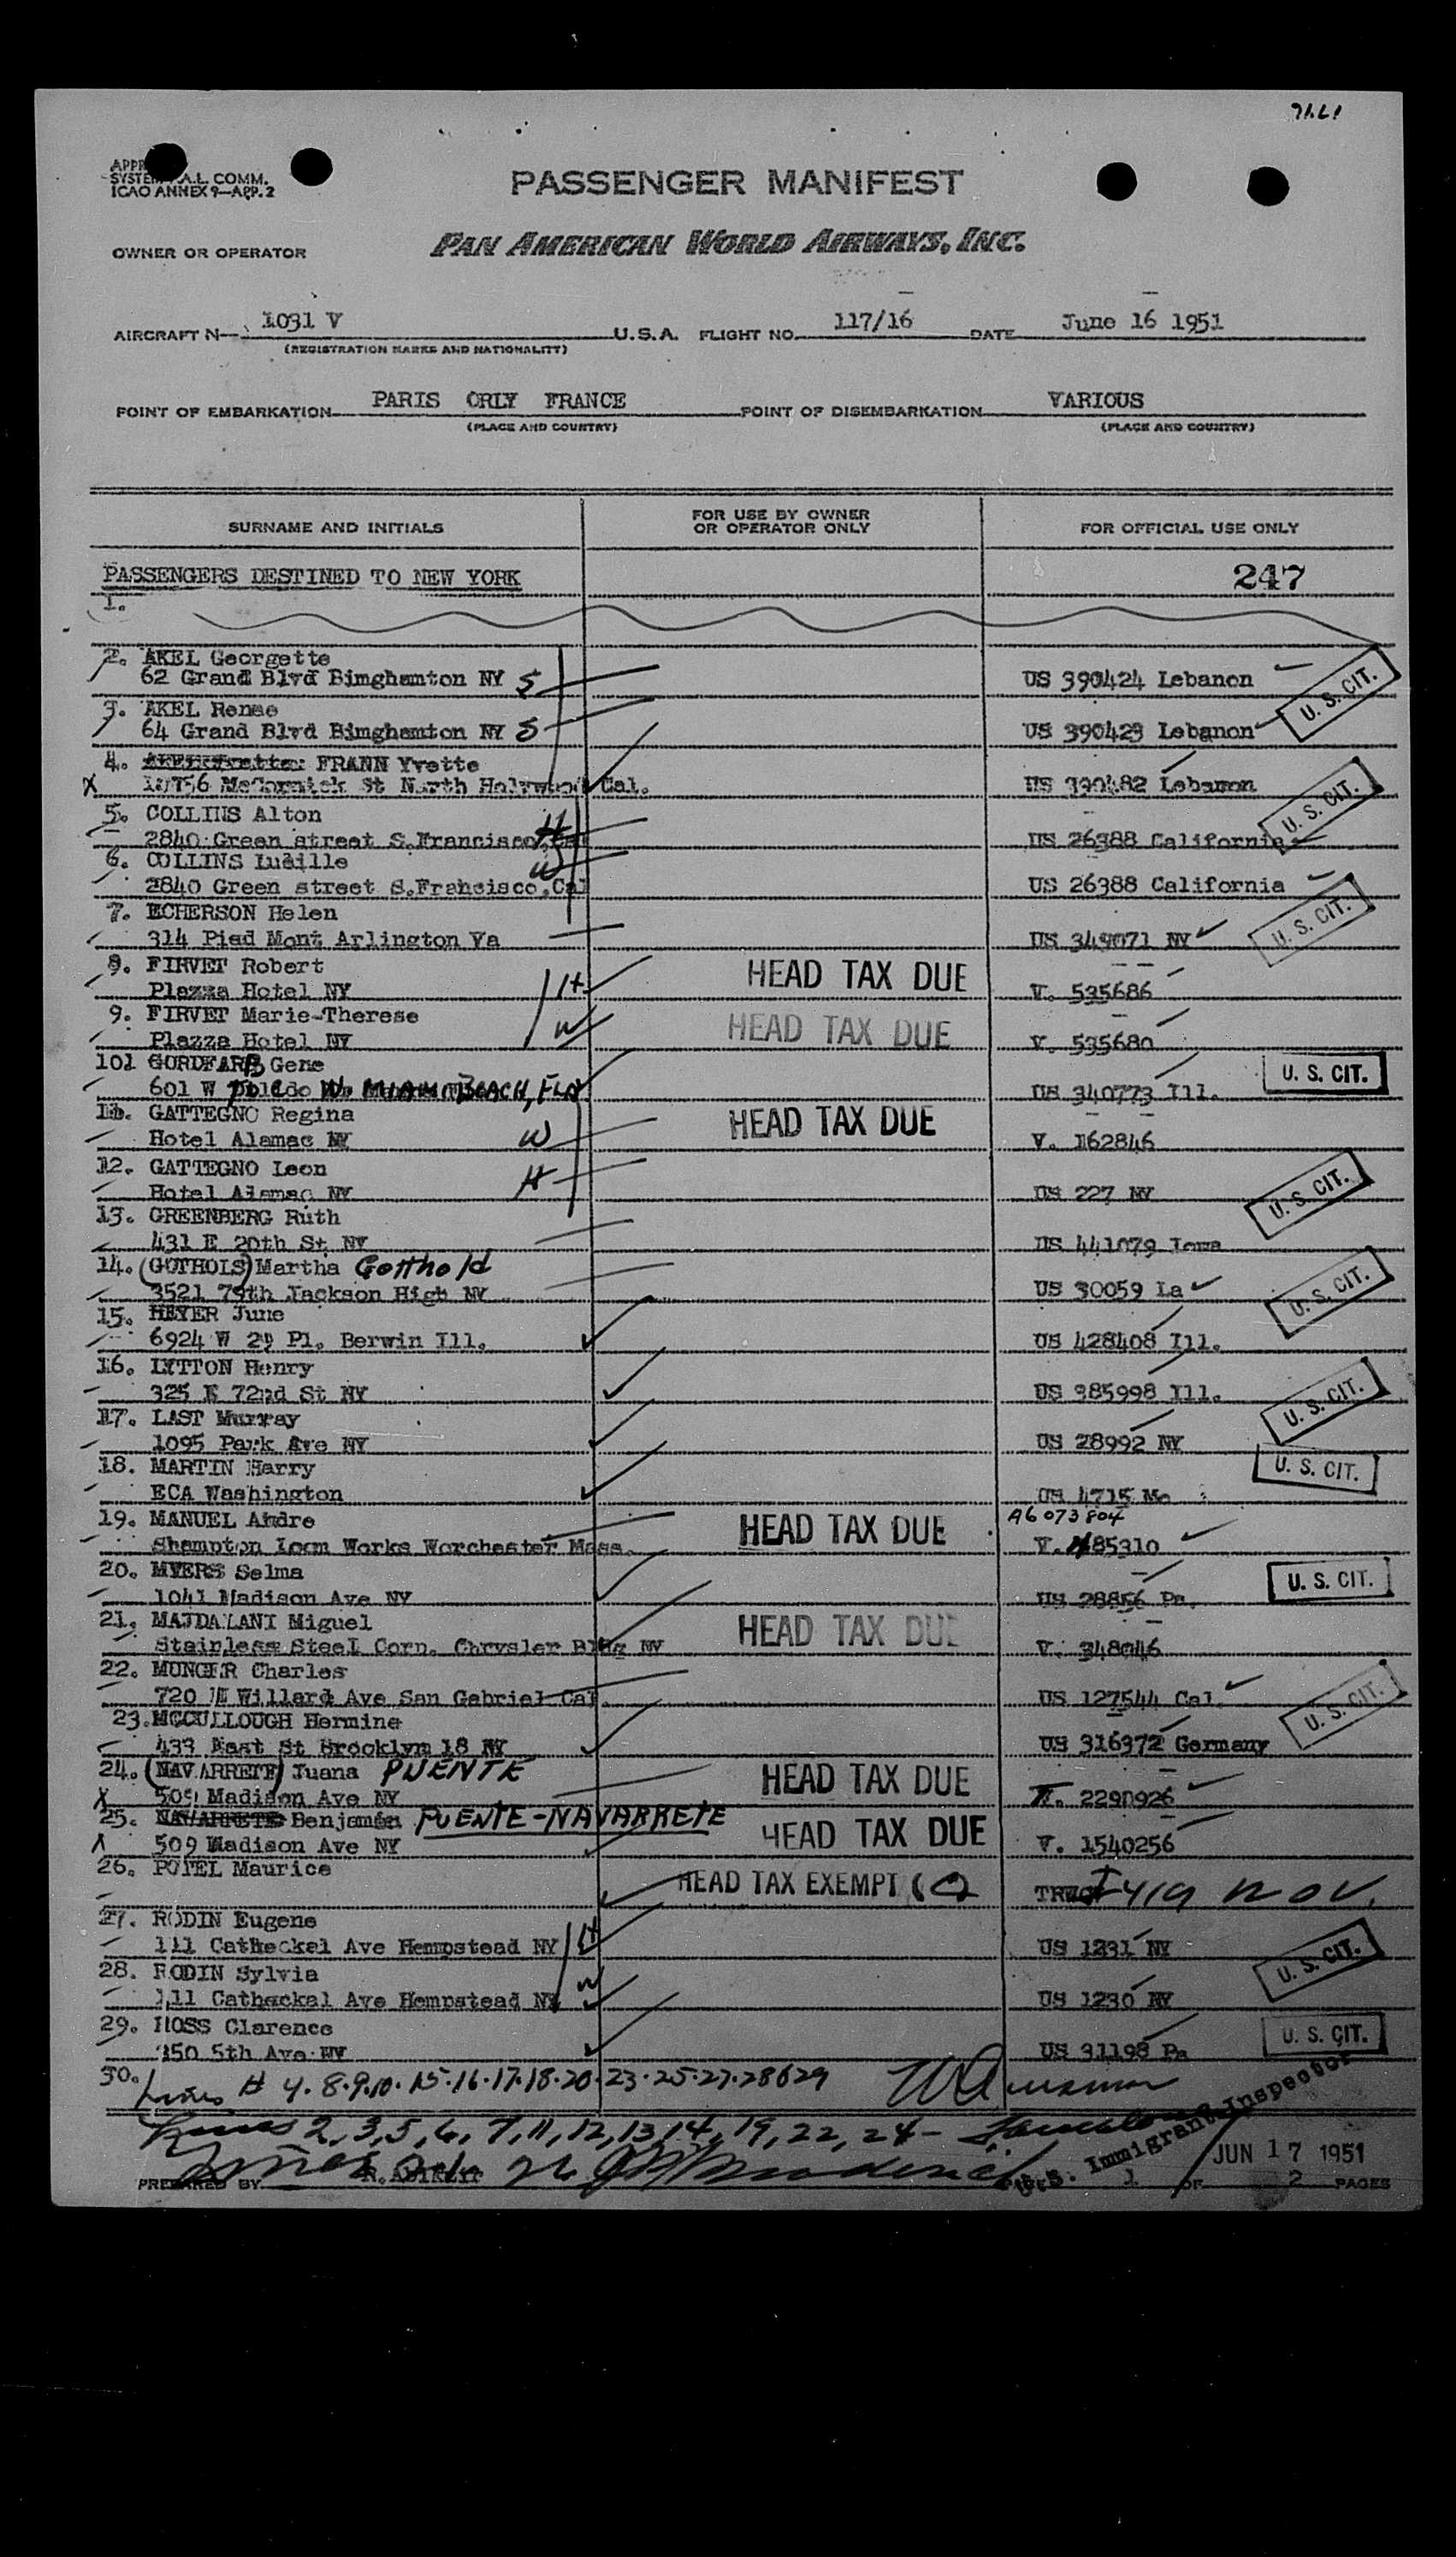 PASSENGER MANIFEST
SYSTEM A.L. COMM.
ICAO ANNEX 9—APP. 2
OWNER OR OPERATOR PAN AMERICAN WORLD AIRWAYS, INC.
AIRCRAFT N— 1031 V U.S.A. FLIGHT NO. 117/16 DATE June 16 1951
(REGISTRATION MARKS AND NATIONALITY)
POINT OF EMBARKATION PARIS ORLY FRANCE POINT OF DISEMBARKATION VARIOUS
(PLACE AND COUNTRY) (PLACE AND COUNTRY)
SURNAME AND INITIALS FOR USE BY OWNER OR OPERATOR ONLY FOR OFFICIAL USE ONLY
PASSENGERS DESTINED TO NEW YORK 247
1.
2. AKEL Georgette
62 Grand Blvd Bimghamton NY S US 390424 Lebanon U. S. CIT.
3. AKEL Renee
64 Grand Blvd Bimghamton NY S US 390423 Lebanon
4. FRANN Yvette
McCormick St North Holywood Cal. US 390482 Lebanon U. S. CIT.
5. COLLINS Alton H
2840 Green street S.Francisco US 26388 California
6. COLLINS Lucille W
2840 Green street S.Francisco.Cal US 26388 California
7. ECHERSON Helen U. S. CIT.
314 Pied Mont Arlington Va US 349071 NY
8. FIRVET Robert HEAD TAX DUE
Plazza Hotel NY H V. 535686
9. FIRVET Marie-Therese HEAD TAX DUE
Plazza Hotel NY W V. 535680
10. Gene U. S. CIT.
601 W MIAMI BEACH, FLA US 340773 Ill.
11. GATTEGNO Regina HEAD TAX DUE
Hotel Alamac NY W V. 162846
12. GATTEGNO Leon
Hotel Alamac NY H US 227 NY U. S. CIT.
13. GREENBERG Ruth
431 E 20th St. NY US 441079 Iowa
14. (GOTHOLS) Martha Gotthold
3521 79th Jackson High NY US 30059 La U. S. CIT.
15. HEYER June
6924 W 29 Pl. Berwin Ill. US 428408 Ill.
16. LYTTON Henry
325 E 72nd St NY US 385998 Ill. U. S. CIT.
17. LAST Murray
1095 Park Ave NY US 28992 NY
18. MARTIN Harry U. S. CIT.
ECA Washington US 4715 Mo
19. MANUEL Andre HEAD TAX DUE A6 073 804
Shampton Loom Works Worchester Mass. V. 485310
20. MYERS Selma U. S. CIT.
1041 Madison Ave NY US 28856 Pa.
21. MAJDALANI Miguel HEAD TAX DUE
Stainless Steel Corp. Chrysler Bldg NY V. 348046
22. MUNGER Charles
720 Willard Ave San Gabriel Cal. US 127544 Cal. U. S. CIT.
23. MCCULLOUGH Hermine
433 East St Brooklym 18 NY US 316372 Germany
24. (NAVARRETE) Juana PUENTE HEAD TAX DUE
509 Madison Ave NY V. 2290926
25. NAVARRETE Benjamin PUENTE-NAVARRETE HEAD TAX DUE
509 Madison Ave NY V. 1540256
26. POTEL Maurice HEAD TAX EXEMPT I 419 NOV.
27. RODIN Eugene H
111 Catheckal Ave Hempstead NY US 1231 NY U. S. CIT.
28. RODIN Sylvia W
111 Catheckal Ave Hempstead NY US 1230 NY
29. ROSS Clarence U. S. CIT.
350 5th Ave NY US 31198 Pa
30. Lines # 4.8.9.10.15.16.17.18.20.23.25.27.28&29
Lines 2, 3, 5, 6, 7, 11, 12, 13, 14, 19, 22, 24 -
U.S. Immigrant Inspector
JUN 17 1951
PREPARED BY 1 OF 2 PAGES